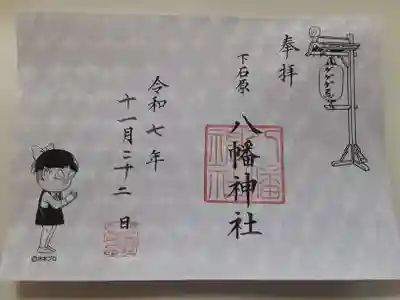 奉拝
下石原
八幡神社
令和七年
十一月二十二日
ゲゲゲ忌
©水木プロ